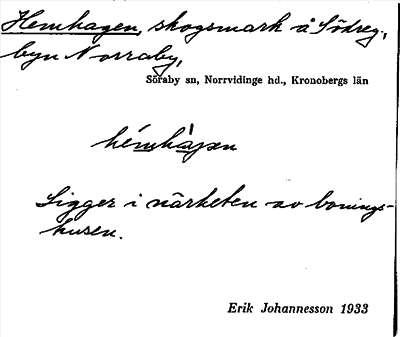 Hemhagen, skogsmark å Södreg.,
byn Norraby,
Söraby sn, Norrvidinge hd., Kronobergs län
hémhà̀gen
Ligger i närheten av bonings-
husen.
Erik Johannesson 1933